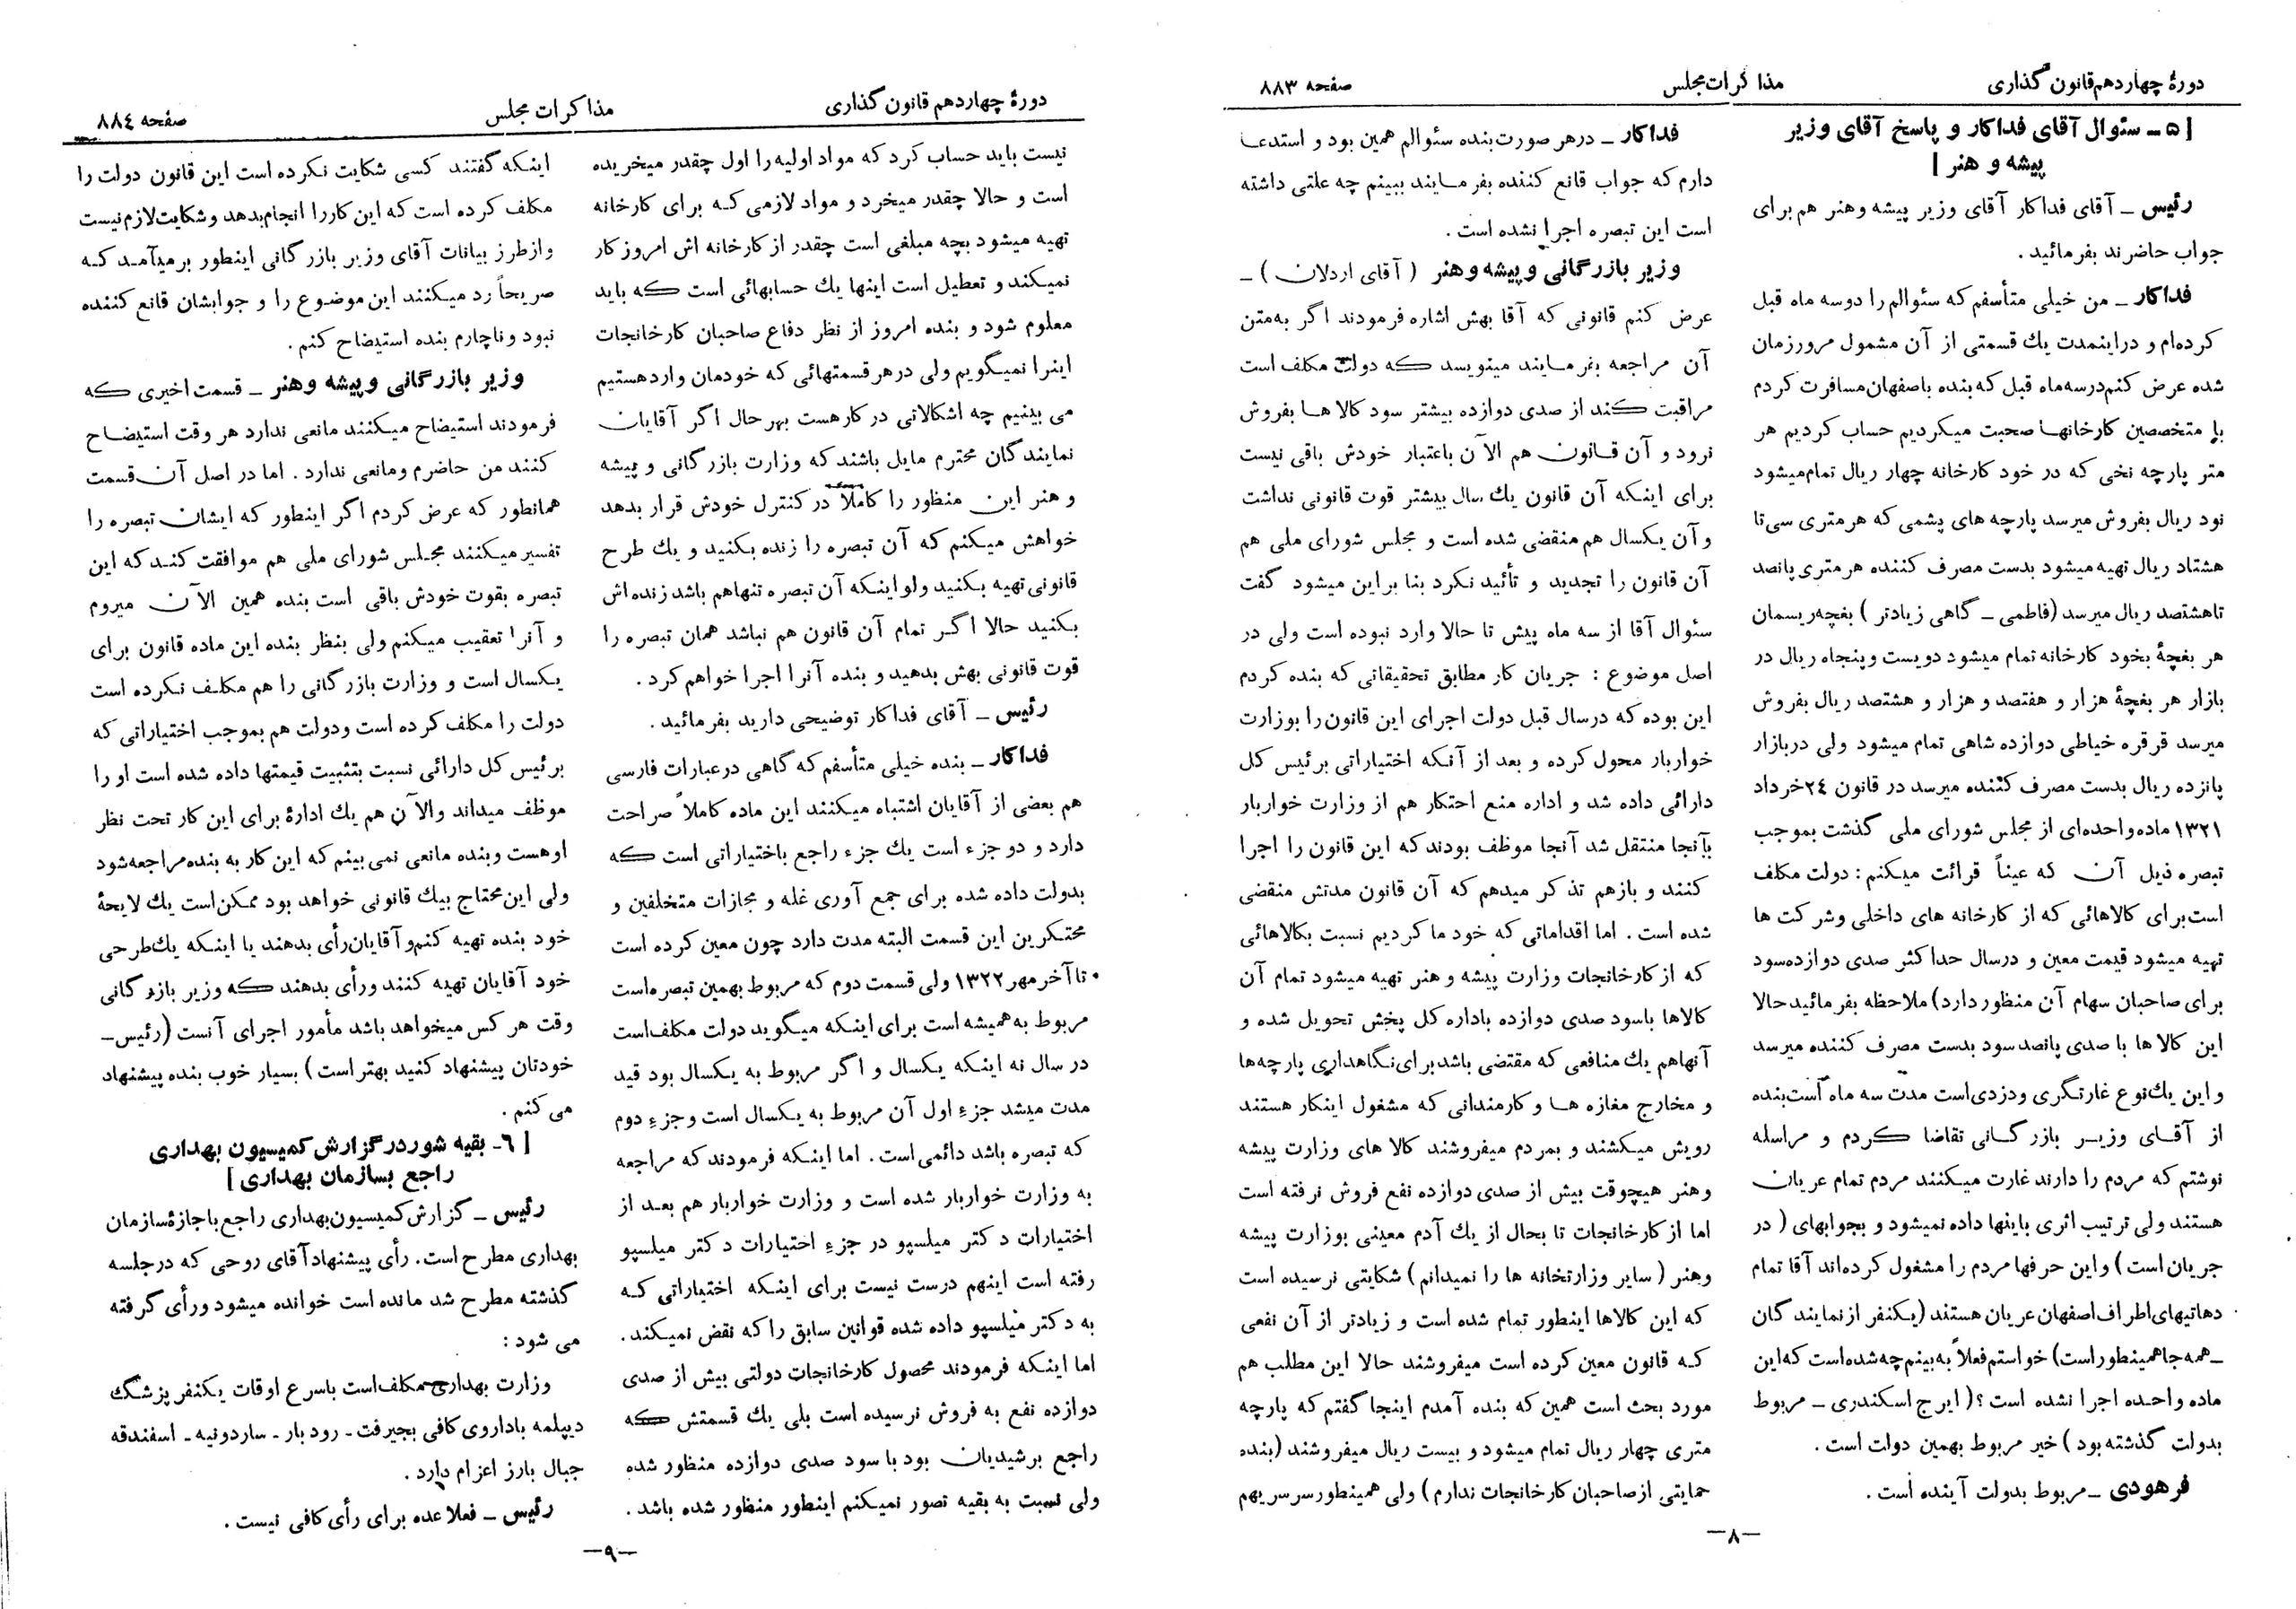 دورهٔ چهاردهم قانون گذاری
مذاکرات مجلس
صفحه ۸۸۳
[۵ ـ سئوال آقای فداکار و پاسخ آقای وزیر
پیشه و هنر]
رئیس ـ آقای فداکار آقای وزیر پیشه وهنر هم برای
جواب حاضرند بفرمائید .
فداکار ـ من خیلی متأسفم که سئوالم را دوسه ماه قبل
کرده‌ام و دراینمدت یك قسمتی از آن مشمول مرورزمان
شده عرض کنم درسه‌ماه قبل که بنده باصفهان مسافرت کردم
با متخصصین کارخانها صحبت میکردیم حساب کردیم هر
متر پارچه نخی که در خود کارخانه چهار ریال تمام میشود
نود ریال بفروش میرسد پارچه های پشمی که هرمتری سی تا
هشتاد ریال تهیه میشود بدست مصرف کننده هرمتری پانصد
تاهشتصد ریال میرسد (فاطمی ـ گاهی زیادتر ) بغچه ریسمان
هر بغچهٔ بخود کارخانه تمام میشود دویست وپنجاه ریال در
بازار هر بغچهٔ هزار و هفتصد و هزار و هشتصد ریال بفروش
میرسد قرقره خیاطی دوازده شاهی تمام میشود ولی دربازار
پانزده ریال بدست مصرف کننده میرسد در قانون ۲٤خرداد
۱۳۲۱ ماده‌واحده‌ای از مجلس شورای ملی گذشت بموجب
تبصره ذیل آن که عیناً قرائت میکنم : دولت مکلف
است برای کالاهائی که از کارخانه های داخلی وشرکت ها
تهیه میشود قیمت معین و درسال حداکثر صدی دوازده‌سود
برای صاحبان سهام آن منظور دارد) ملاحظه بفرمائید حالا
این کالا ها با صدی پانصد سود بدست مصرف کننده میرسد
و این یك‌نوع غارتگری ودزدی‌است مدت سه ماه است‌بنده
از آقـای وزیـر بازرگـانی تقاضا کـردم و مراسله
نوشتم که مردم را دارند غارت میکنند مردم تمام عریان
هستند ولی ترتیب اثری باینها داده نمیشود و بجوابهای ( در
جریان است ) واین حرفها مردم را مشغول کرده‌اند آقا تمام
دهاتیهای‌اطراف‌اصفهان عریان هستند (یکنفر ازنمایندگان
ـ همه‌جا همینطوراست) خواستم فعلاً به‌بینم چه‌شده‌است که‌این
ماده واحده اجرا نشده است ؟ ( ایرج اسکندری ـ مربوط
بدولت گذشته بود ) خیر مربوط بهمین دولت است .
فرهودی ـ مربوط بدولت آینده است .
فداکار ـ درهر صورت بنده سئوالم همین بود و استدعـا
دارم که جواب قانع کننده بفرمـایند ببینم چه علتی داشته
است این تبصره اجرا نشده است .
وزیر بازرگانی و پیشه و هنر ( آقای اردلان ) ـ
عرض کنم قانونی که آقا بهش اشاره فرمودند اگر به‌متن
آن مراجعه بفرمـایند مینویسد کـه دولت مکلف است
مراقبت کـند از صدی دوازده بیشتر سود کالا هـا بفروش
نرود و آن قـانون هم الآن باعتبار خودش باقی نیست
برای اینکه آن قانون یك سال بیشتر قوت قانونی نداشت
وآن یکسال هم منقضی شده است و مجلس شورای ملی هم
آن قانون را تجدید و تأئید نکرد بنا براین میشود گفت
سئوال آقا از سه ماه پیش تا حالا وارد نبوده است ولی در
اصل موضوع : جریان کار مطابق تحقیقاتی که بنده کردم
این بوده که درسال قبل دولت اجرای این قانون را بوزارت
خواربار محول کرده و بعد از آنکه اختیاراتی برئیس کل
دارائی داده شد و اداره منع احتکار هم از وزارت خواربار
بآنجا منتقل شد آنجا موظف بودند که این قانون را اجرا
کنند و بازهم تذکر میدهم که آن قانون مدتش منقضی
شده است . اما اقداماتی که خود ما کردیم نسبت بکالاهائی
که از کارخانجات وزارت پیشه و هنر تهیه میشود تمام آن
کالاها باسود صدی دوازده باداره کل پخش تحویل شده و
آنهاهم یك منافعی که مقتضی باشد برای نگاهداری پارچه‌ها
و مخارج مغازه هـا و کارمندانی که مشغول اینکار هستند
رویش میکشند و بمردم میفروشند کالا های وزارت پیشه
وهنر هیچوقت بیش از صدی دوازده نفع فروش نرفته است
اما از کارخانجات تا بحال از یك آدم معینی بوزارت پیشه
وهنر ( سایر وزارتخانه ها را نمیدانم ) شکایتی نرسیده است
که این کالاها اینطور تمام شده است و زیادتر از آن نفعی
کـه قانون معین کرده است میفروشند حالا این مطلب هم
مورد بحث است همین که بنده آمدم اینجا گفتم که پارچه
متری چهار ریال تمام میشود و بیست ریال میفروشند (بنده
حمایتی از صاحبان کارخانجات ندارم ) ولی همینطورسرسریهم
ـ۸ـ
دورهٔ چهاردهم قانون گذاری
مذاکرات مجلس
صفحه ۸۸٤
نیست باید حساب کرد که مواد اولیه را اول چقدر میخریده
است و حالا چقدر میخرد و مواد لازمی کـه برای کارخانه
تهیه میشود بچه مبلغی است چقدر از کارخانه اش امروز کار
نمیکند و تعطیل است اینها یك حسابهائی است کـه باید
معلوم شود و بنده امروز از نظر دفاع صاحبان کارخانجات
اینرا نمیگویم ولی درهر قسمتهائی که خودمان وارد هستیم
می بینیم چه اشکالاتی در کارهست بهرحال اگر آقایان
نمایندگان محترم مایل باشند که وزارت بازرگانی و پیشه
و هنر این منظور را کاملاً در کنترل خودش قرار بدهد
خواهش میکنم که آن تبصره را زنده بکنید و یك طرح
قانونی تهیه بکنید ولو اینکه آن تبصره تنهاهم باشد زنده‌اش
بکنید حالا اگـر تمام آن قانون هم نباشد همان تبصره را
قوت قانونی بهش بدهید و بنده آنرا اجرا خواهم کرد .
رئیس ـ آقای فداکار توضیحی دارید بفرمائید .
فداکار ـ بنده خیلی متأسفم که گاهی درعبارات فارسی
هم بعضی از آقایان اشتباه میکنند این ماده کاملاً صراحت
دارد و دو جزء است یك جزء راجع باختیاراتی است کـه
بدولت داده شده برای جمع آوری غله و مجازات متخلفین و
محتکرین این قسمت البته مدت دارد چون معین کرده است
تا آخر مهر ۱۳۲۲ ولی قسمت دوم که مربوط بهمین تبصره‌است
مربوط به همیشه است برای اینکه میگوید دولت مکلف‌است
در سال نه اینکه یکسال و اگر مربوط به یکسال بود قید
مدت میشد جزء اول آن مربوط به یکسال است و جزء دوم
که تبصره باشد دائمی است . اما اینکه فرمودند که مراجعه
به وزارت خواربار شده است و وزارت خواربار هم بعـد از
اختیارات دکتر میلسپو در جزء اختیارات دکتر میلسپو
رفته است اینهم درست نیست برای اینکه اختیاراتی کـه
به دکتر میلسپو داده شده قوانین سابق را که نقض نمیکند .
اما اینکه فرمودند محصول کارخانجات دولتی بیش از صدی
دوازده نفع به فروش نرسیده است بلی یك قسمتش کـه
راجع برشیدیان بود با سود صدی دوازده منظور شده
ولی نسبت به بقیه تصور نمیکنم اینطور منظور شده باشد .
اینکه گفتند کسی شکایت نکرده است این قانون دولت را
مکلف کرده است که این کاررا انجام بدهد و شکایت لازم نیست
وازطرز بیانات آقای وزیر بازرگانی اینطور برمیآمـد کـه
صریحاً رد میکنند این موضوع را و جوابشان قانع کننده
نبود وناچارم بنده استیضاح کنم .
وزیر بازرگانی و پیشه و هنر ـ قسمت اخیری کـه
فرمودند استیضاح میکنند مانعی ندارد هر وقت استیضـاح
کنند من حاضرم ومانعی ندارد . اما در اصل آن قسمت
همانطور که عرض کردم اگر اینطور که ایشان تبصره را
تفسیر میکنند مجلس شورای ملی هم موافقت کنـد که این
تبصره بقوت خودش باقی است بنده همین الآن میروم
و آنرا تعقیب میکنم ولی بنظر بنده این ماده قانون برای
یکسال است و وزارت بازرگانی را هم مکلـف نکرده است
دولت را مکلف کرده است ودولت هم بموجب اختیاراتی که
برئیس کل دارائی نسبت بتثبیت قیمتها داده شده است او را
موظف میداند والآن هم یك ادارهٔ برای این کار تحت نظر
اوهست وبنده مانعی نمی بینم که این کار به بنده مراجعه‌شود
ولی این محتاج بیك قانونی خواهد بود ممکن است یك لایحهٔ
خود بنده تهیه کنم وآقایان‌رأی بدهند یا اینکه یك‌طرحی
خود آقایان تهیه کنند ورأی بدهند کـه وزیر بازرگانی
وقت هر کس میخواهد باشد مأمور اجرای آنست (رئیس ـ
خودتان پیشنهاد کنید بهتر است ) بسیار خوب بنده پیشنهاد
می کنم .
[ ٦ـ بقیه شور در گزارش کمیسیون بهداری
راجع بسازمان بهداری ]
رئیس ـ گزارش کمیسیون‌بهداری راجع باجازهٔ سازمان
بهداری مطرح است. رأی پیشنهاد آقای روحی که درجلسه
گذشته مطرح شد مانده است خوانده میشود ورأی گرفته
می شود :
وزارت بهداری مکلف‌است باسرع اوقات یکنفر پزشگ
دیپلمه باداروی کافی بجیرفت ـ رودبار ـ ساردوئیه ـ اسفندقه
جبال بارز اعزام دارد .
رئیس ـ فعلا عده برای رأی کافی نیست .
ـ۹ـ